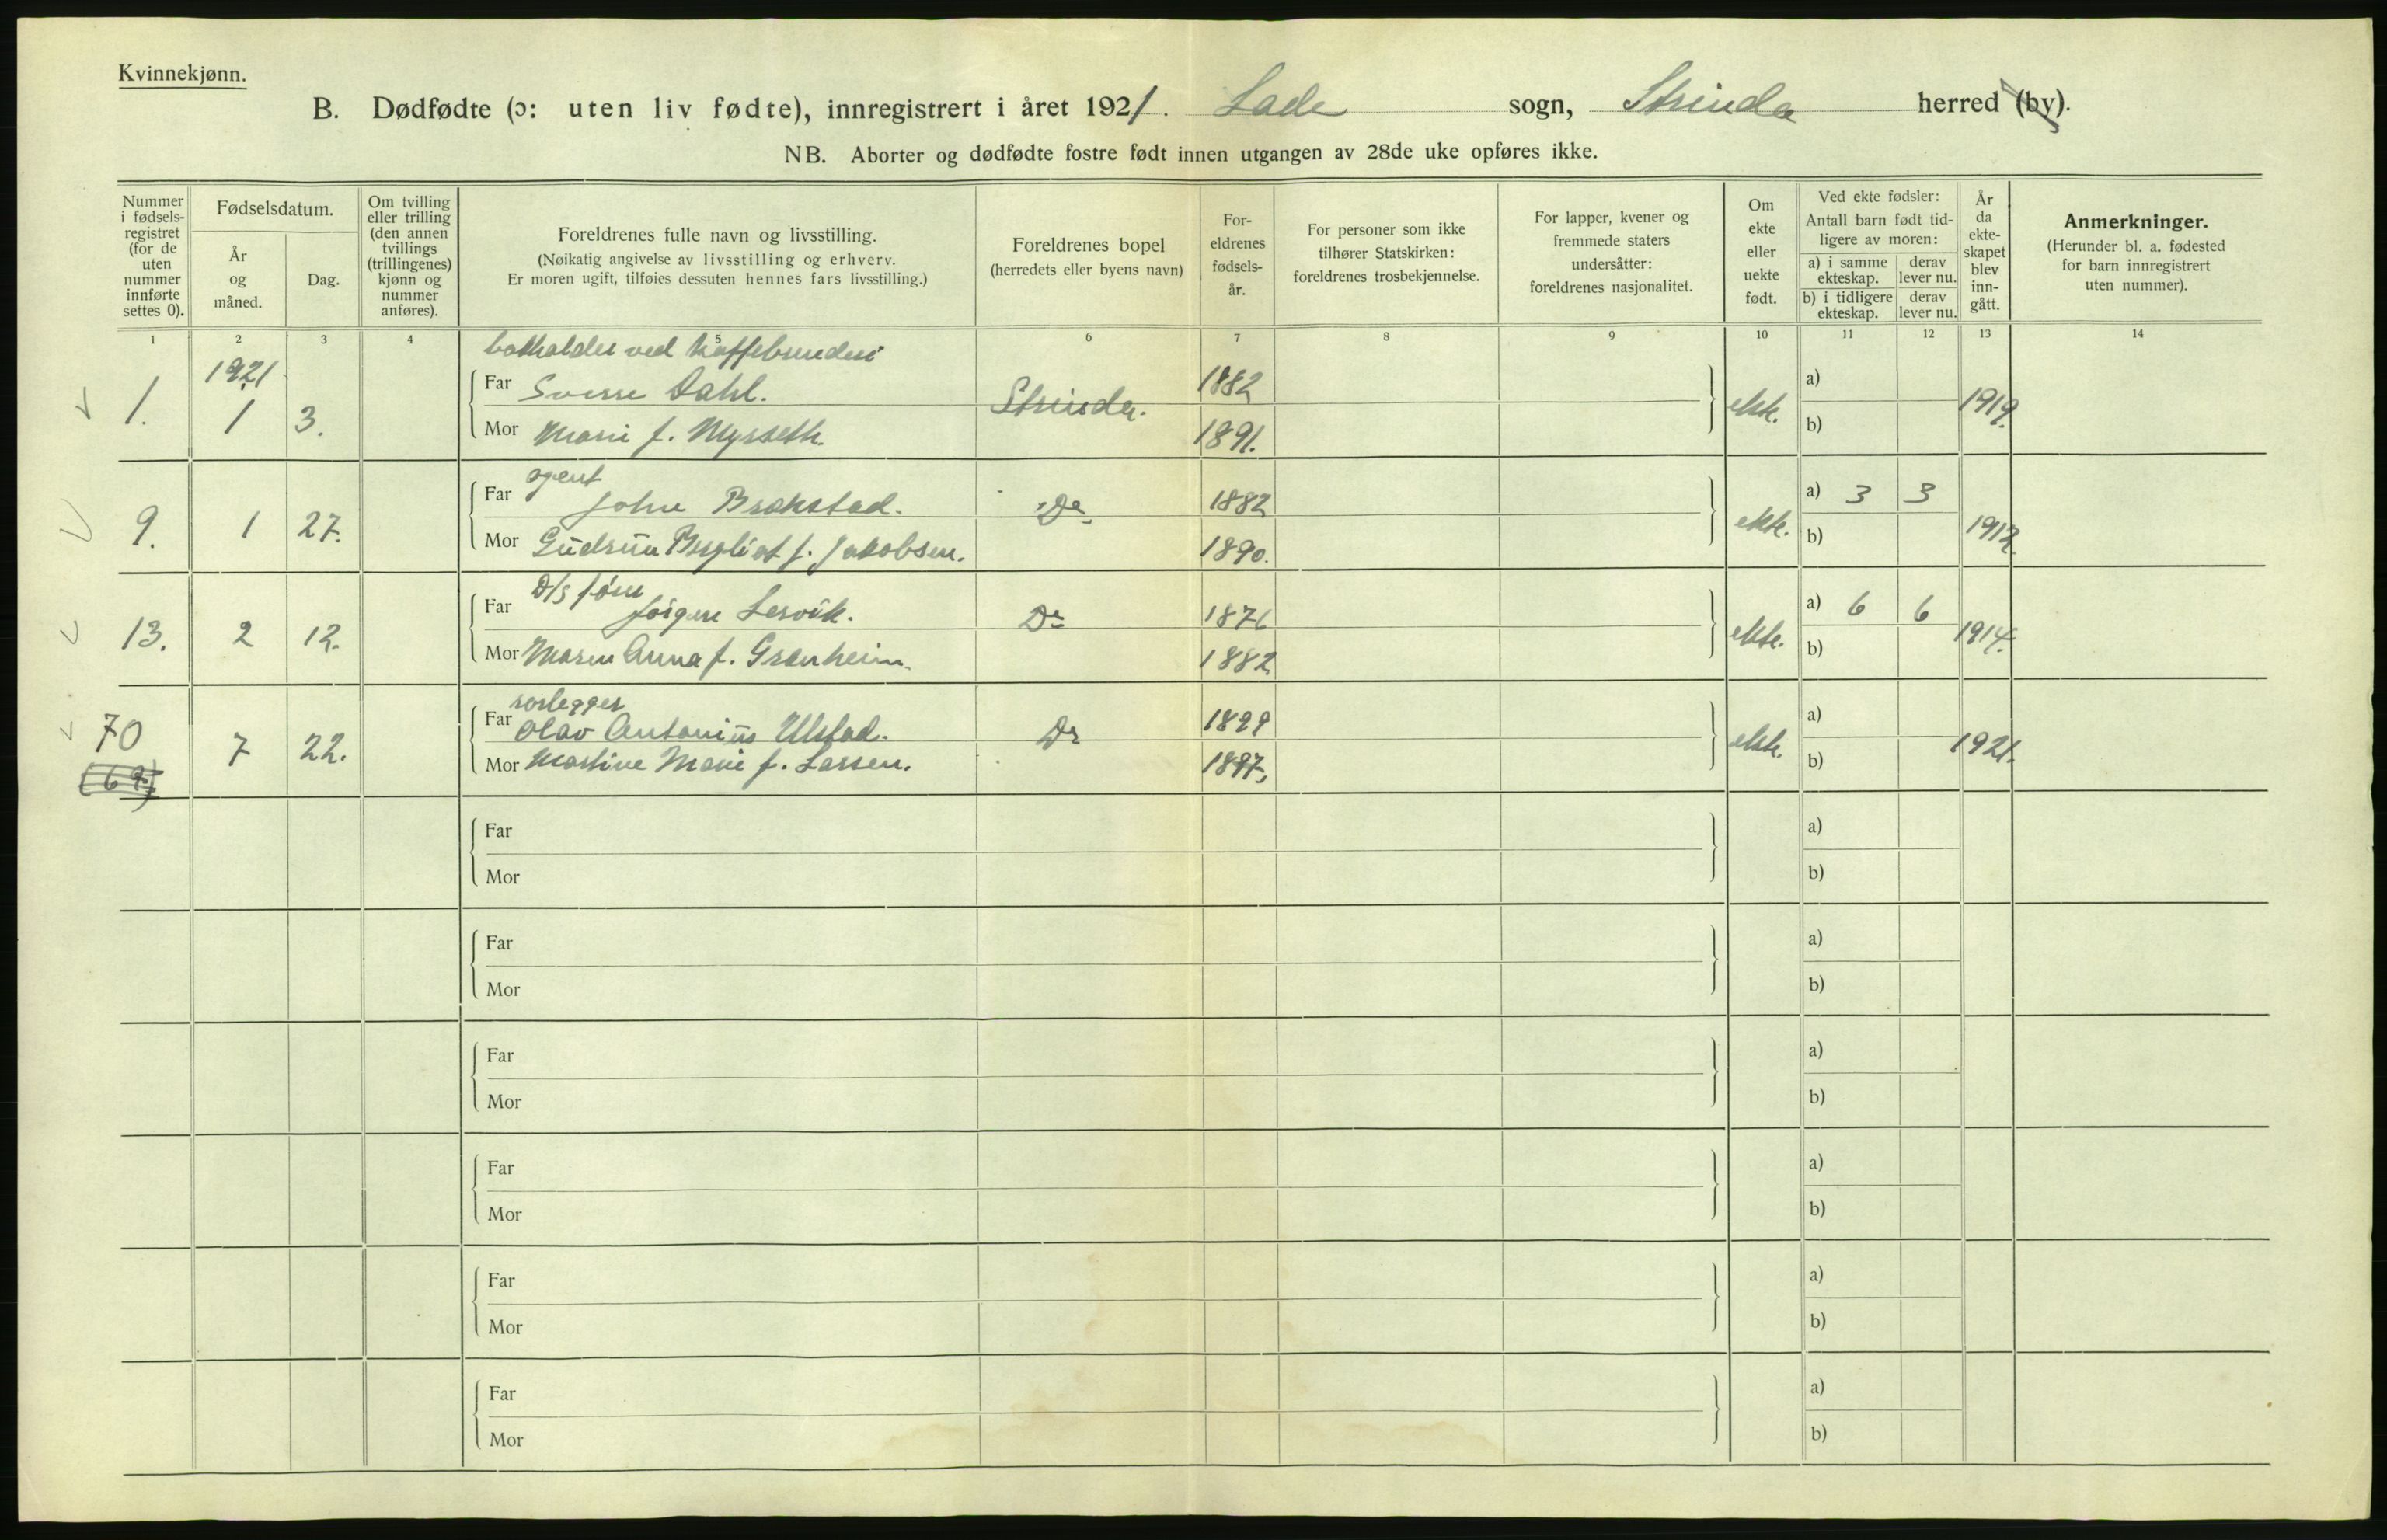 Kvinnekjønn.
B. Dødfødte (ɔ: uten liv fødte), innregistrert i året 1921. Lade sogn, Strinda herred (by).
NB. Aborter og dødfødte fostre født innen utgangen av 28de uke opføres ikke.
Nummer i fødsels-registret (for de uten nummer innførte settes 0).
Fødselsdatum.
År og måned.
Dag.
Om tvilling eller trilling (den annen tvillings (trillingenes) kjønn og nummer anføres).
Foreldrenes fulle navn og livsstilling.
(Nøikatig angivelse av livsstilling og erhverv.
Er moren ugift, tilføies dessuten hennes fars livsstilling.)
Foreldrenes bopel
(herredets eller byens navn)
For-eldrenes fødsels-år.
For personer som ikke tilhører Statskirken: foreldrenes trosbekjennelse.
For lapper, kvener og fremmede staters undersåtter: foreldrenes nasjonalitet.
Om ekte eller uekte født.
Ved ekte fødsler:
Antall barn født tid-ligere av moren:
a) i samme ekteskap.
derav lever nu.
b) i tidligere ekteskap.
derav lever nu.
År da ekte-skapet blev inn-gått.
Anmerkninger.
(Herunder bl. a. fødested for barn innregistrert uten nummer).
1 2 3 4 5 6 7 8 9 10 11 12 13 14
bokholder ved kaffebrenderi
1921
1. 1 3. Far Sverre Dahl. Strinda. 1882 ekte. a) 1919.
Mor Marie f. Mysseth. 1891. b)
agent
9. 1 27. Far John Brekstad. Do 1882 ekte. a) 3 3 1912.
Mor Gudrun Bergliot f. Jakobsen. 1890. b)
13. 2 12. Far Jørgen Lervik. Do 1876 ekte. a) 6 6 1914.
Mor Maren Anna f. Granheim. 1882 b)
rørlegger
70 7 22. Far Olav Antonius Ulstad. Do 1899 ekte. a) 1921.
(69) Mor Martine Marie f. Larsen. 1897. b)
Far a)
Mor b)
Far a)
Mor b)
Far a)
Mor b)
Far a)
Mor b)
Far a)
Mor b)
Far a)
Mor b)